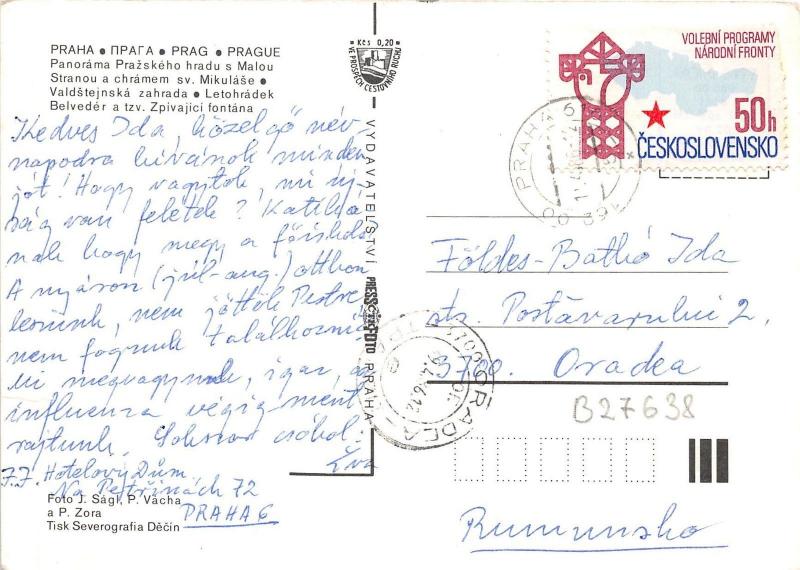 PRAHA ● ПРАГА ● PRAG ● PRAGUE
Panoráma Pražského hradu s Malou
Stranou a chrámem sv. Mikuláše ●
Valdštejnská zahrada ● Letohrádek
Belvedér a tzv. Zpívající fontána
Kedves Ida, közelgő név-
napodra kívánok minden
jót! Hogy vagytok, mi új-
ság van felétek?
nak hogy megy a főiskola
A nyáron (júl-aug.) otthon
leszünk, nem jöttök Pestre
nem fogunk találkozni
Mi megvagyunk, igaz, az
influenza végig ment
rajtunk. Sokszor csókol:
Éva
F.J. Hotelový Dům
Na Petřinách 72
PRAHA 6
Foto J. Ságl, P. Vácha
a P. Zora
Tisk Severografia Děčín
Kčs 0,20
VE PROSPĚCH CESTOVNÍHO RUCHU
VYDAVATELSTVÍ PRESSFOTO PRAHA
VOLEBNÍ PROGRAMY
NÁRODNÍ FRONTY
50h
ČESKOSLOVENSKO
PRAHA 61
3700 ORADEA
Földes-Bathó Ida
str. Postăvarului 2.
3700. Oradea
B27638
Rumunsko